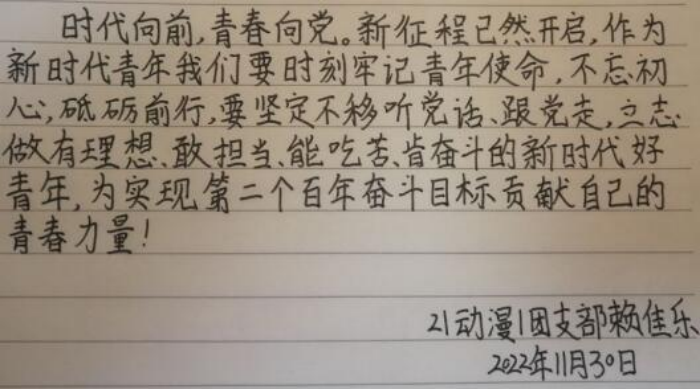 时代向前,青春向党。新征程已然开启,作为
新时代青年我们要时刻牢记青年使命,不忘初
心,砥砺前行,要坚定不移听党话、跟党走,立志
做有理想、敢担当、能吃苦、肯奋斗的新时代好
青年,为实现第二个百年奋斗目标贡献自己的
青春力量!
21动漫1团支部赖佳乐
2022年11月30日